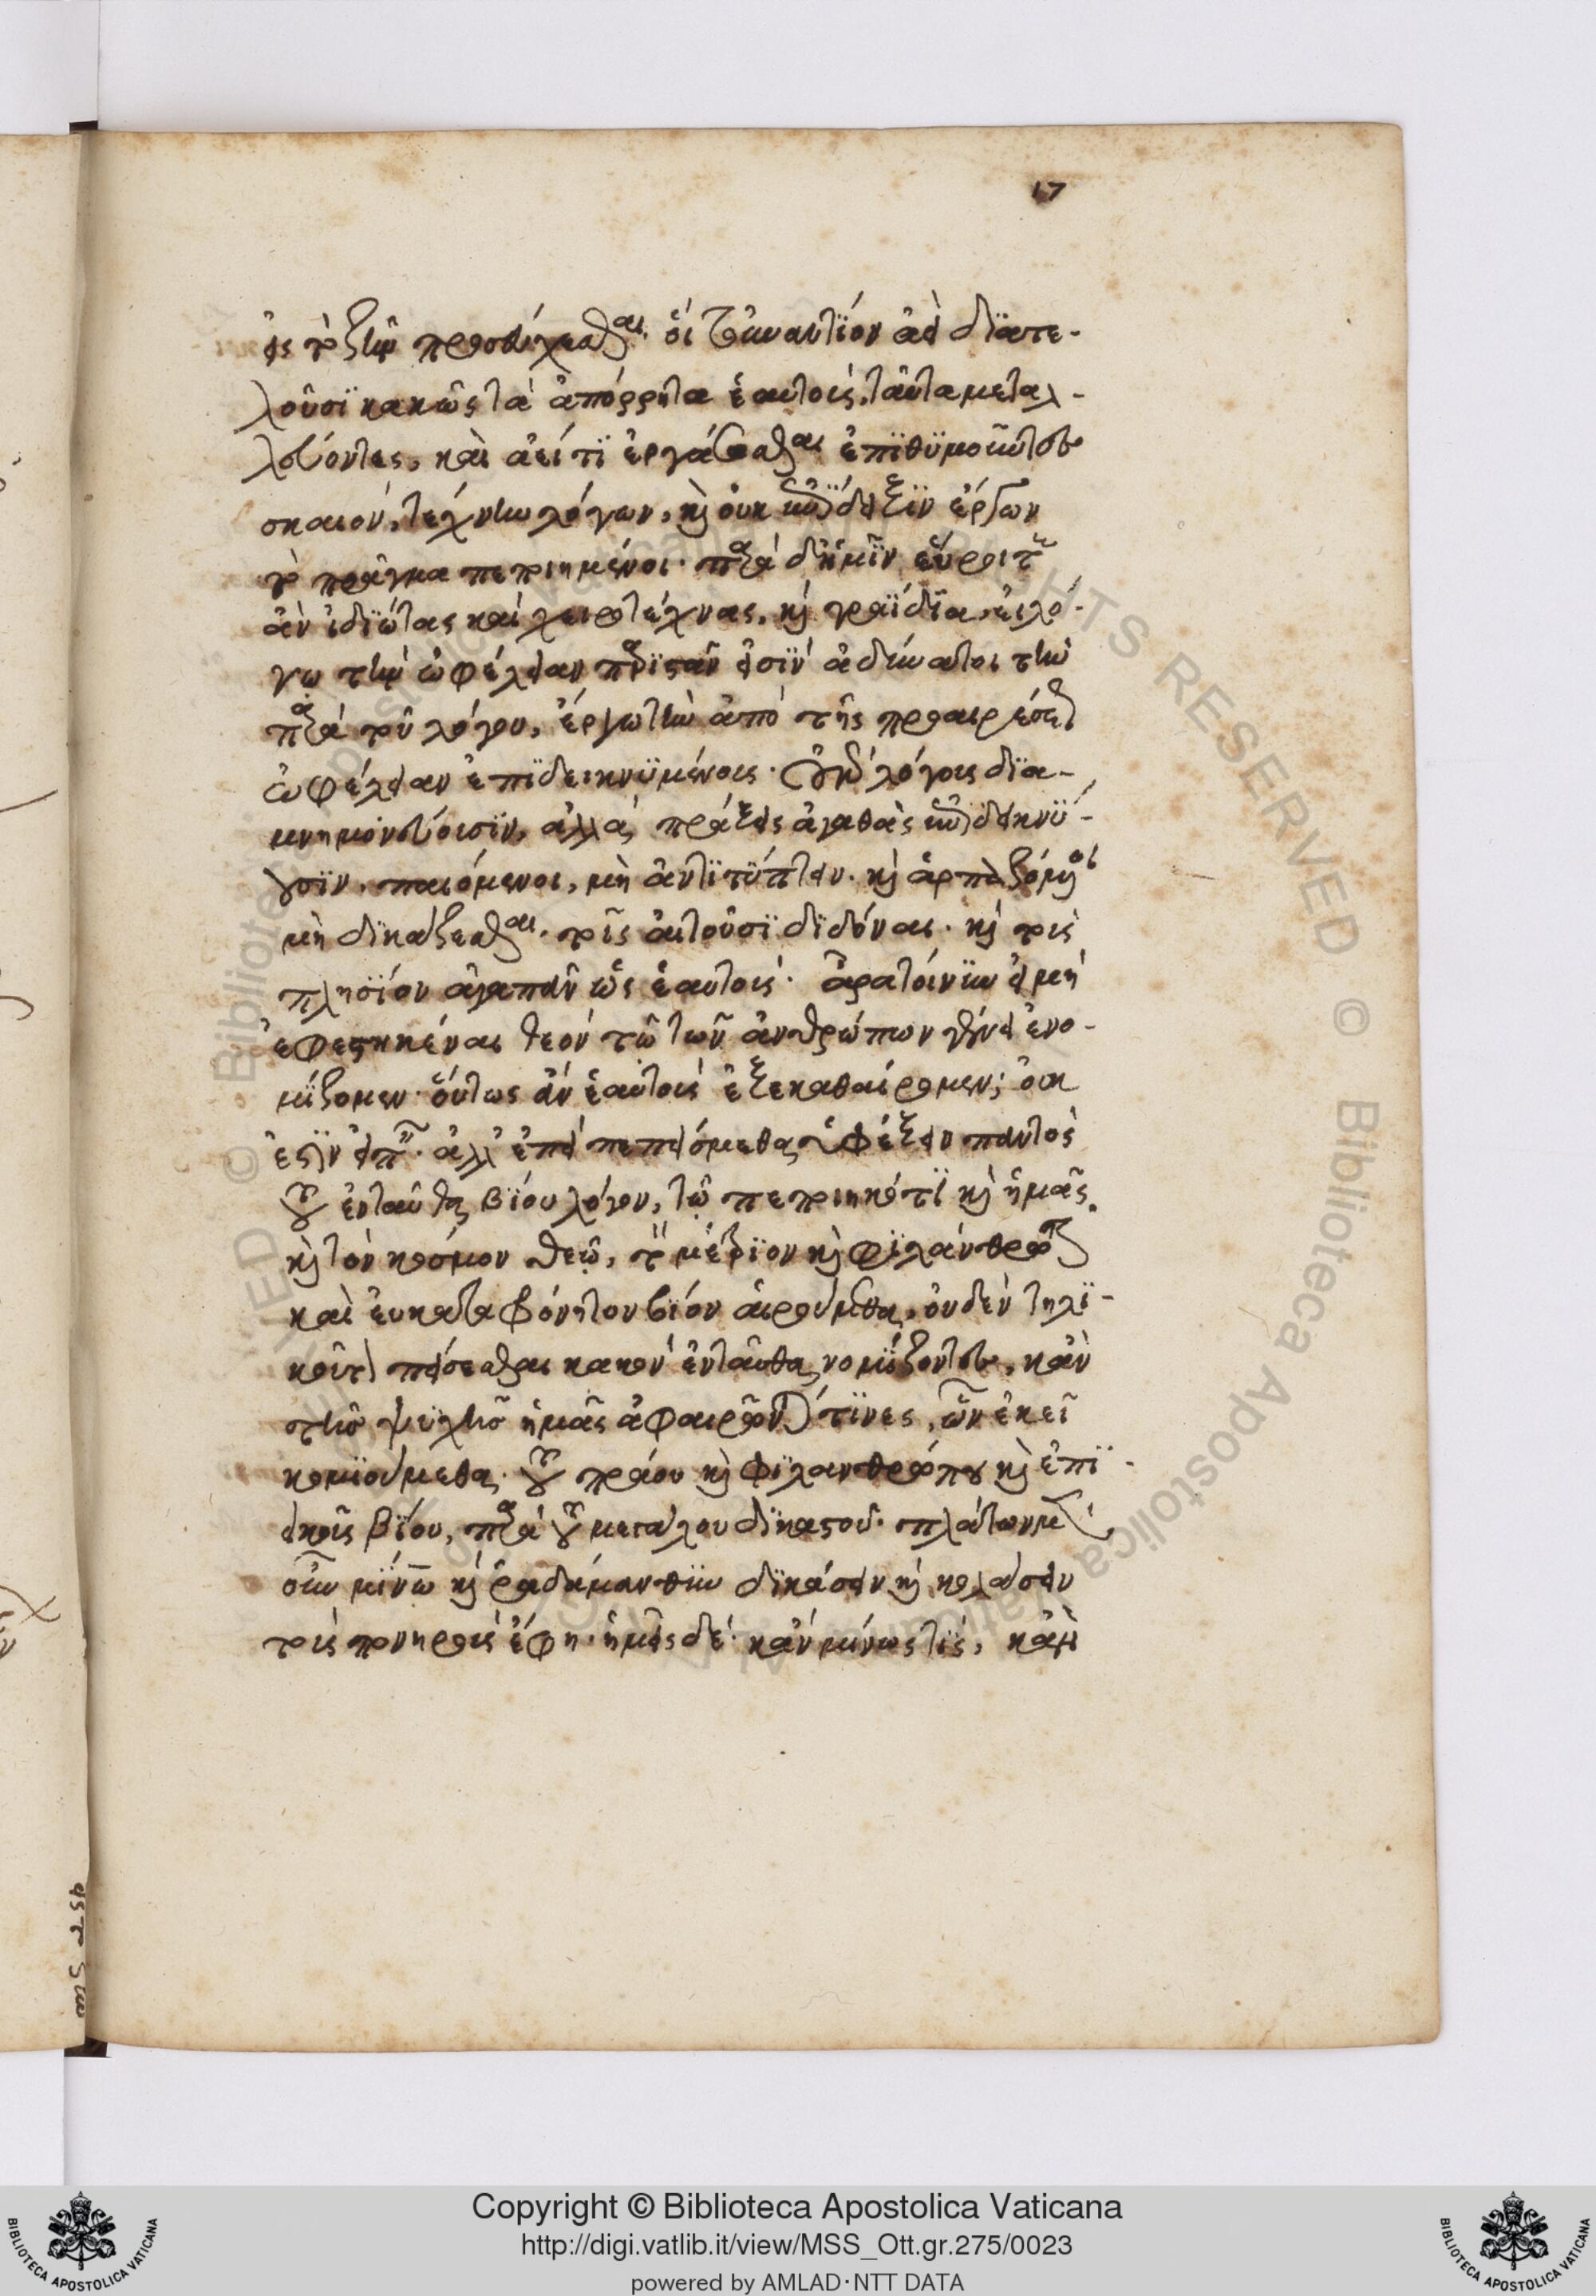 17
εἰς τὸ ζῆν προσεύχεσθαι. οἳ τοὐναντίον ἀεὶ διατε-
λοῦσι κακῶς τὰ ἀπόρρητα ἑαυτοῖς, ταῦτα μεταλ-
λεύοντες, καὶ ἀεί τι ἐργάσασθαι ἐπιθυμοῦντες
κακόν, τέχνην λόγων, καὶ οὐκ ἐπίδειξιν ἔργων
τὸ πρᾶγμα πεποιημένοι. παρὰ δ' ἡμῖν εὕροιτε
ἂν ἰδιώτας καὶ χειροτέχνας, καὶ γραΐδια, εἰ λό-
γῳ τὴν ὠφέλειαν παριστᾶν εἰσὶν ἀδύνατοι τὴν
παρὰ τοῦ λόγου, ἔργῳ τὴν ἀπὸ τῆς προαιρέσεως
ὠφέλειαν ἐπιδεικνυμένους. οὐ γὰρ λόγους δια-
μνημονεύουσιν, ἀλλὰ πράξεις ἀγαθὰς ἐπιδεικνύ-
ουσιν, παιόμενοι, μὴ ἀντιτύπτειν. καὶ ἁρπαζόμενοι
μὴ δικάζεσθαι. τοῖς αἰτοῦσι διδόναι. καὶ τοὺς
πλησίον ἀγαπᾶν ὡς ἑαυτούς. ἆρα τοίνυν εἰ μὴ
ἐφεστηκέναι θεὸν τῷ τῶν ἀνθρώπων γένει ἐνο-
μίζομεν. οὕτως ἂν ἑαυτοὺς ἐξεκαθαίρομεν; οὐκ
ἔστιν εἰπεῖν. ἀλλ' ἐπεὶ πεπείσμεθα ὑφέξειν παντὸς
τοῦ ἐνταῦθα βίου λόγον, τῷ πεποιηκότι καὶ ἡμᾶς
καὶ τὸν κόσμον θεῷ, τὸν μέτριον καὶ φιλάνθρωπον
καὶ εὐκαταφρόνητον βίον αἱρούμεθα, οὐδὲν τηλι-
κοῦτον πείσεσθαι κακὸν ἐνταῦθα νομίζοντες, κἂν
τῆς ψυχῆς ἡμᾶς ἀφαιρῶνταί τινες, ὧν ἐκεῖ
κομιούμεθα. τοῦ πράου καὶ φιλανθρώπου καὶ ἐπι-
εικοῦς βίου, παρὰ τοῦ μεγάλου δικαστοῦ. πλάτων μὲν
οὖν μίνω καὶ ῥαδάμανθυν δικάσειν καὶ κολάσειν
τοὺς πονηροὺς ἔφη. ἡμεῖς δὲ. κἂν μίνως τις, κἂν
Copyright © Biblioteca Apostolica Vaticana
http://digi.vatlib.it/view/MSS_Ott.gr.275/0023
powered by AMLAD·NTT DATA
BIBLIOTECA APOSTOLICA VATICANA
BIBLIOTECA APOSTOLICA VATICANA